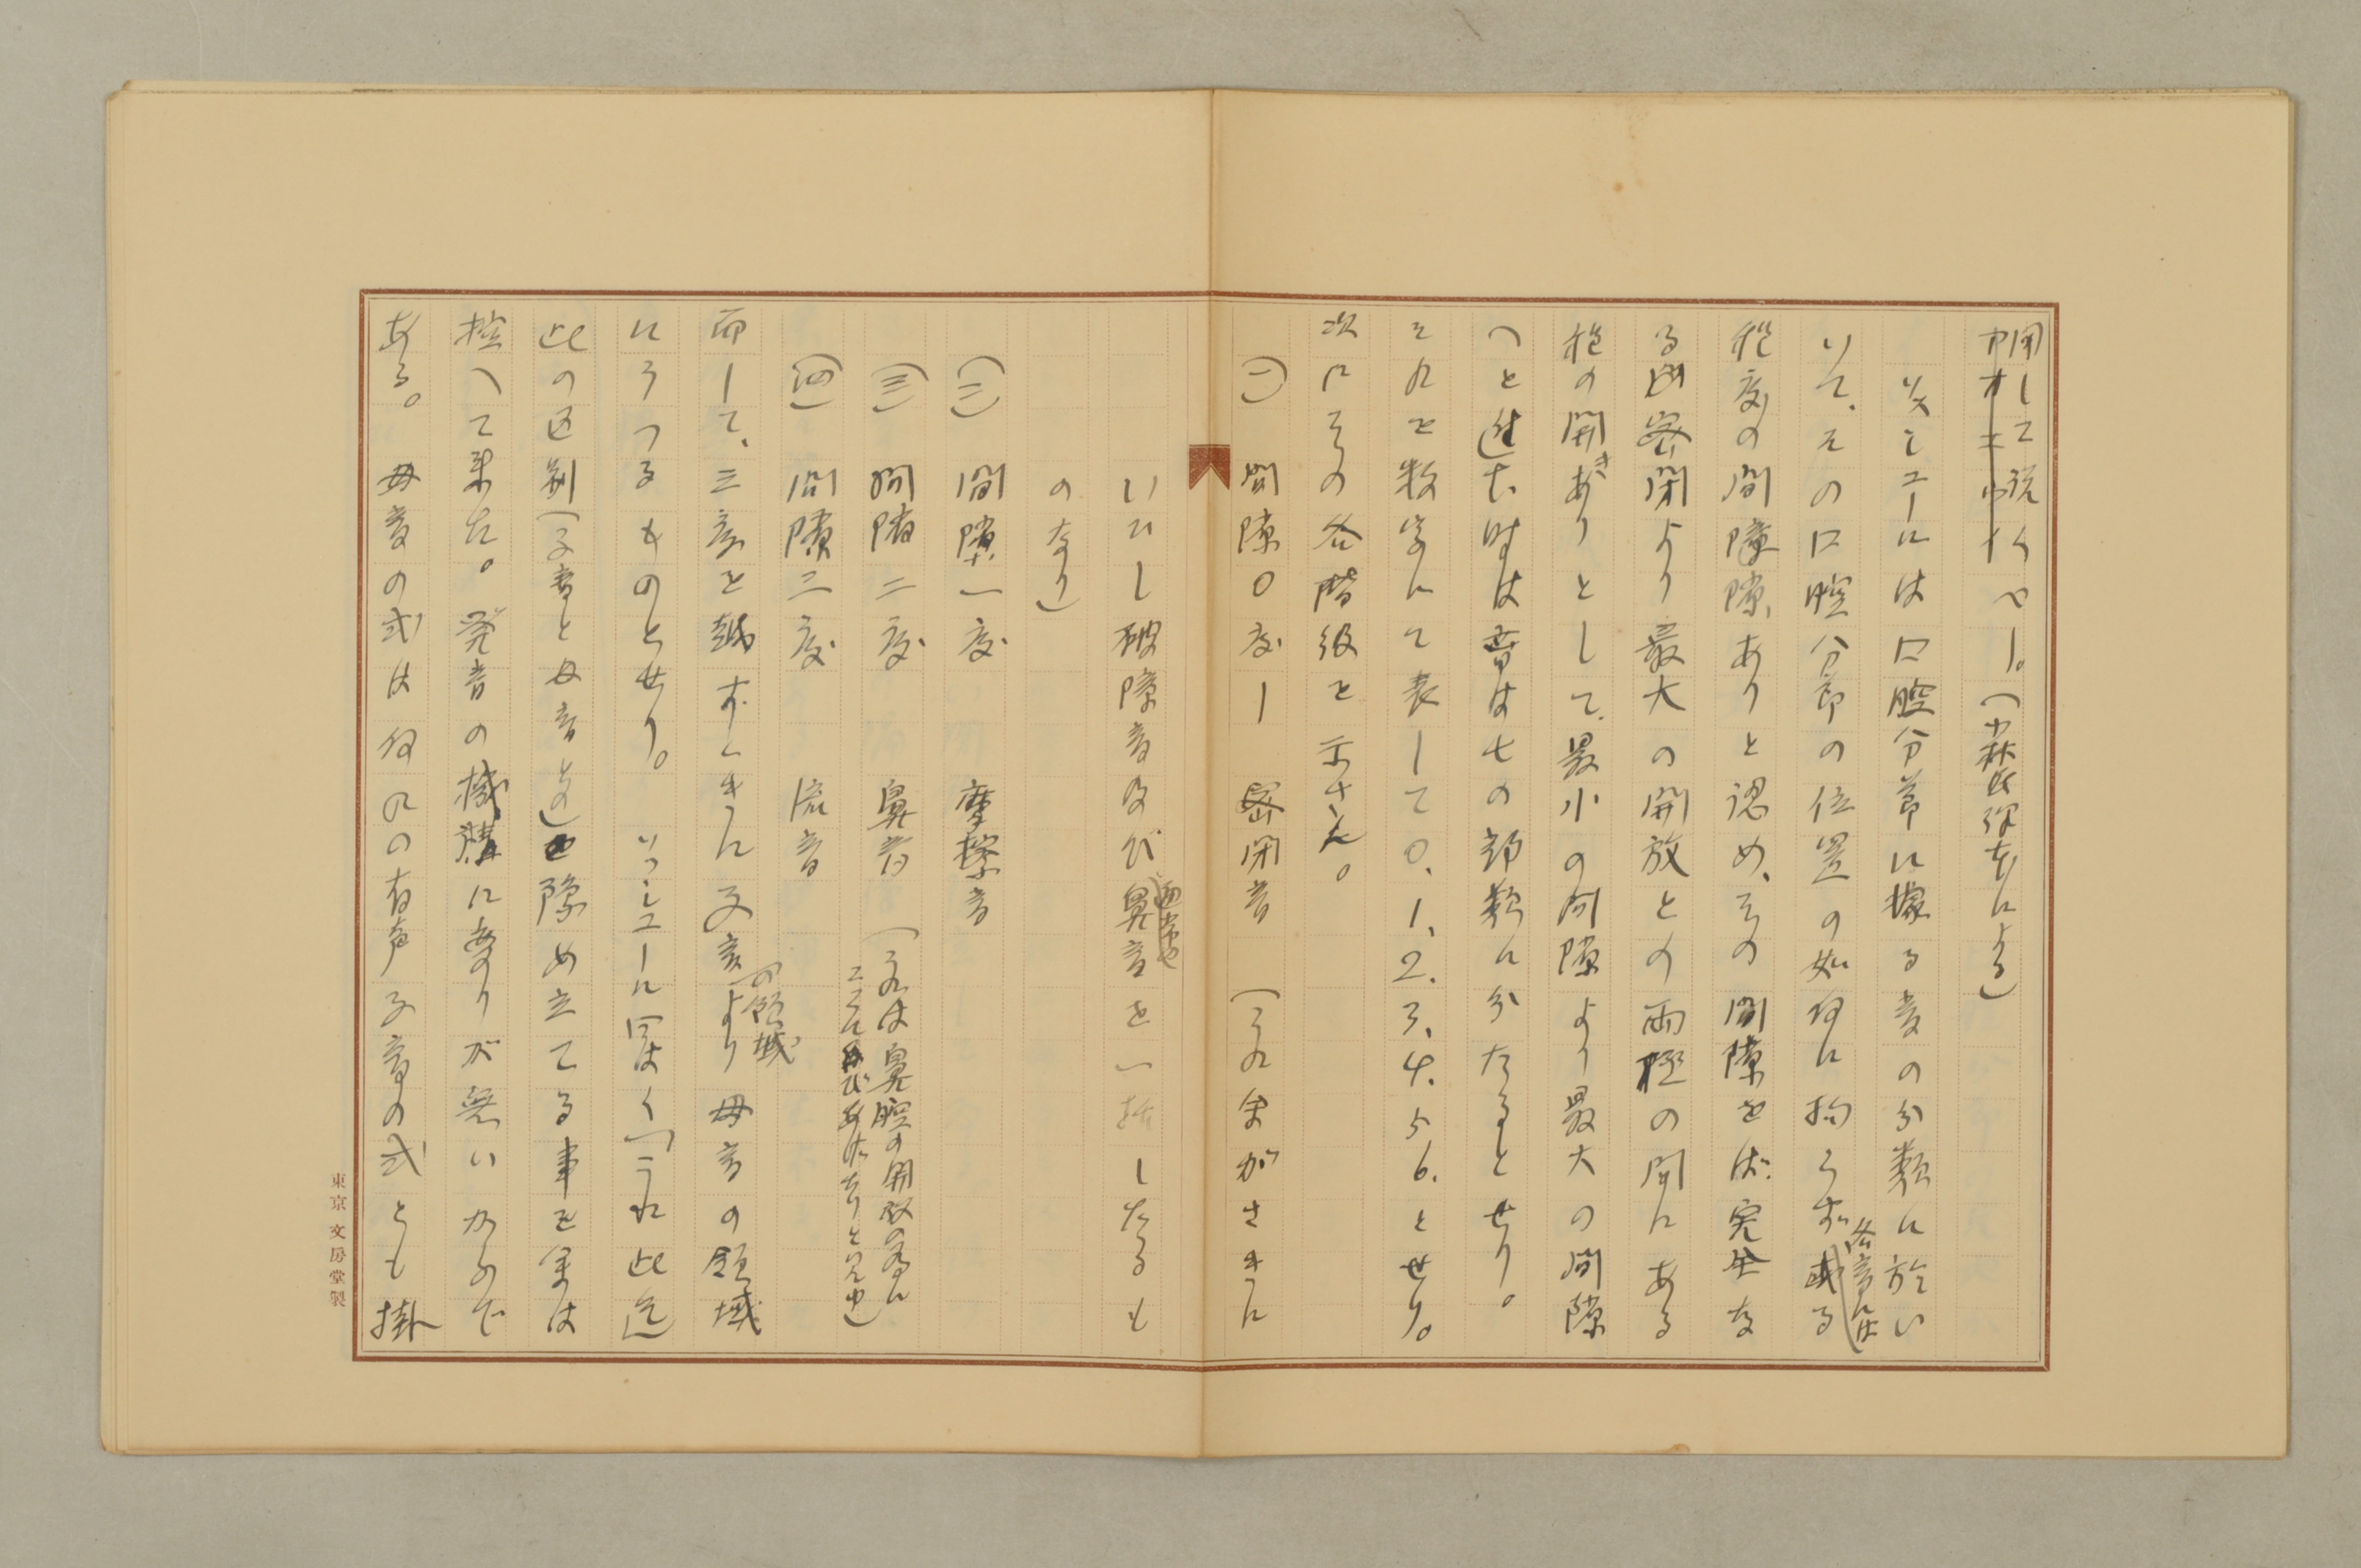 用して説くべし。(小林氏訳本による)
ソスシユールは口腔分節に據る音の分類に於い
いて、その口腔分節の位置の如何に拘らず或る
各音には
程度の間隙ありと認め、その間隙をば完全な
る密閉より最大の開放との両極の間にある
程の開きありとして、最小の間隙より最大の間隙
へと進む時は音は七の部類に分たるとせり。
それを数字にて表して0.1.2.3.4.5.6.とせり。
次にその各階級を示さん。
(一) 間隙0度ー密閉音 (これ余がさきに
いひし破障音及び鼻音を一括したるも
のなり)
(二) 間隙一度 摩擦音
(三) 間隙二度 鼻音 (これは鼻腔の開放の為に
(四) 間隙三度 流音
而して、三度を越すときに子音より母音の領域
の領域
にうつるものとせり。ソシユールに曰はく「これ此迄
此の区別(子音と母音との)を際め立てる事を余は
控へて来た。発音の機構に変りが無いからで
ある。母音の式は何れの有声子音の式とも掛
東京 文房堂製